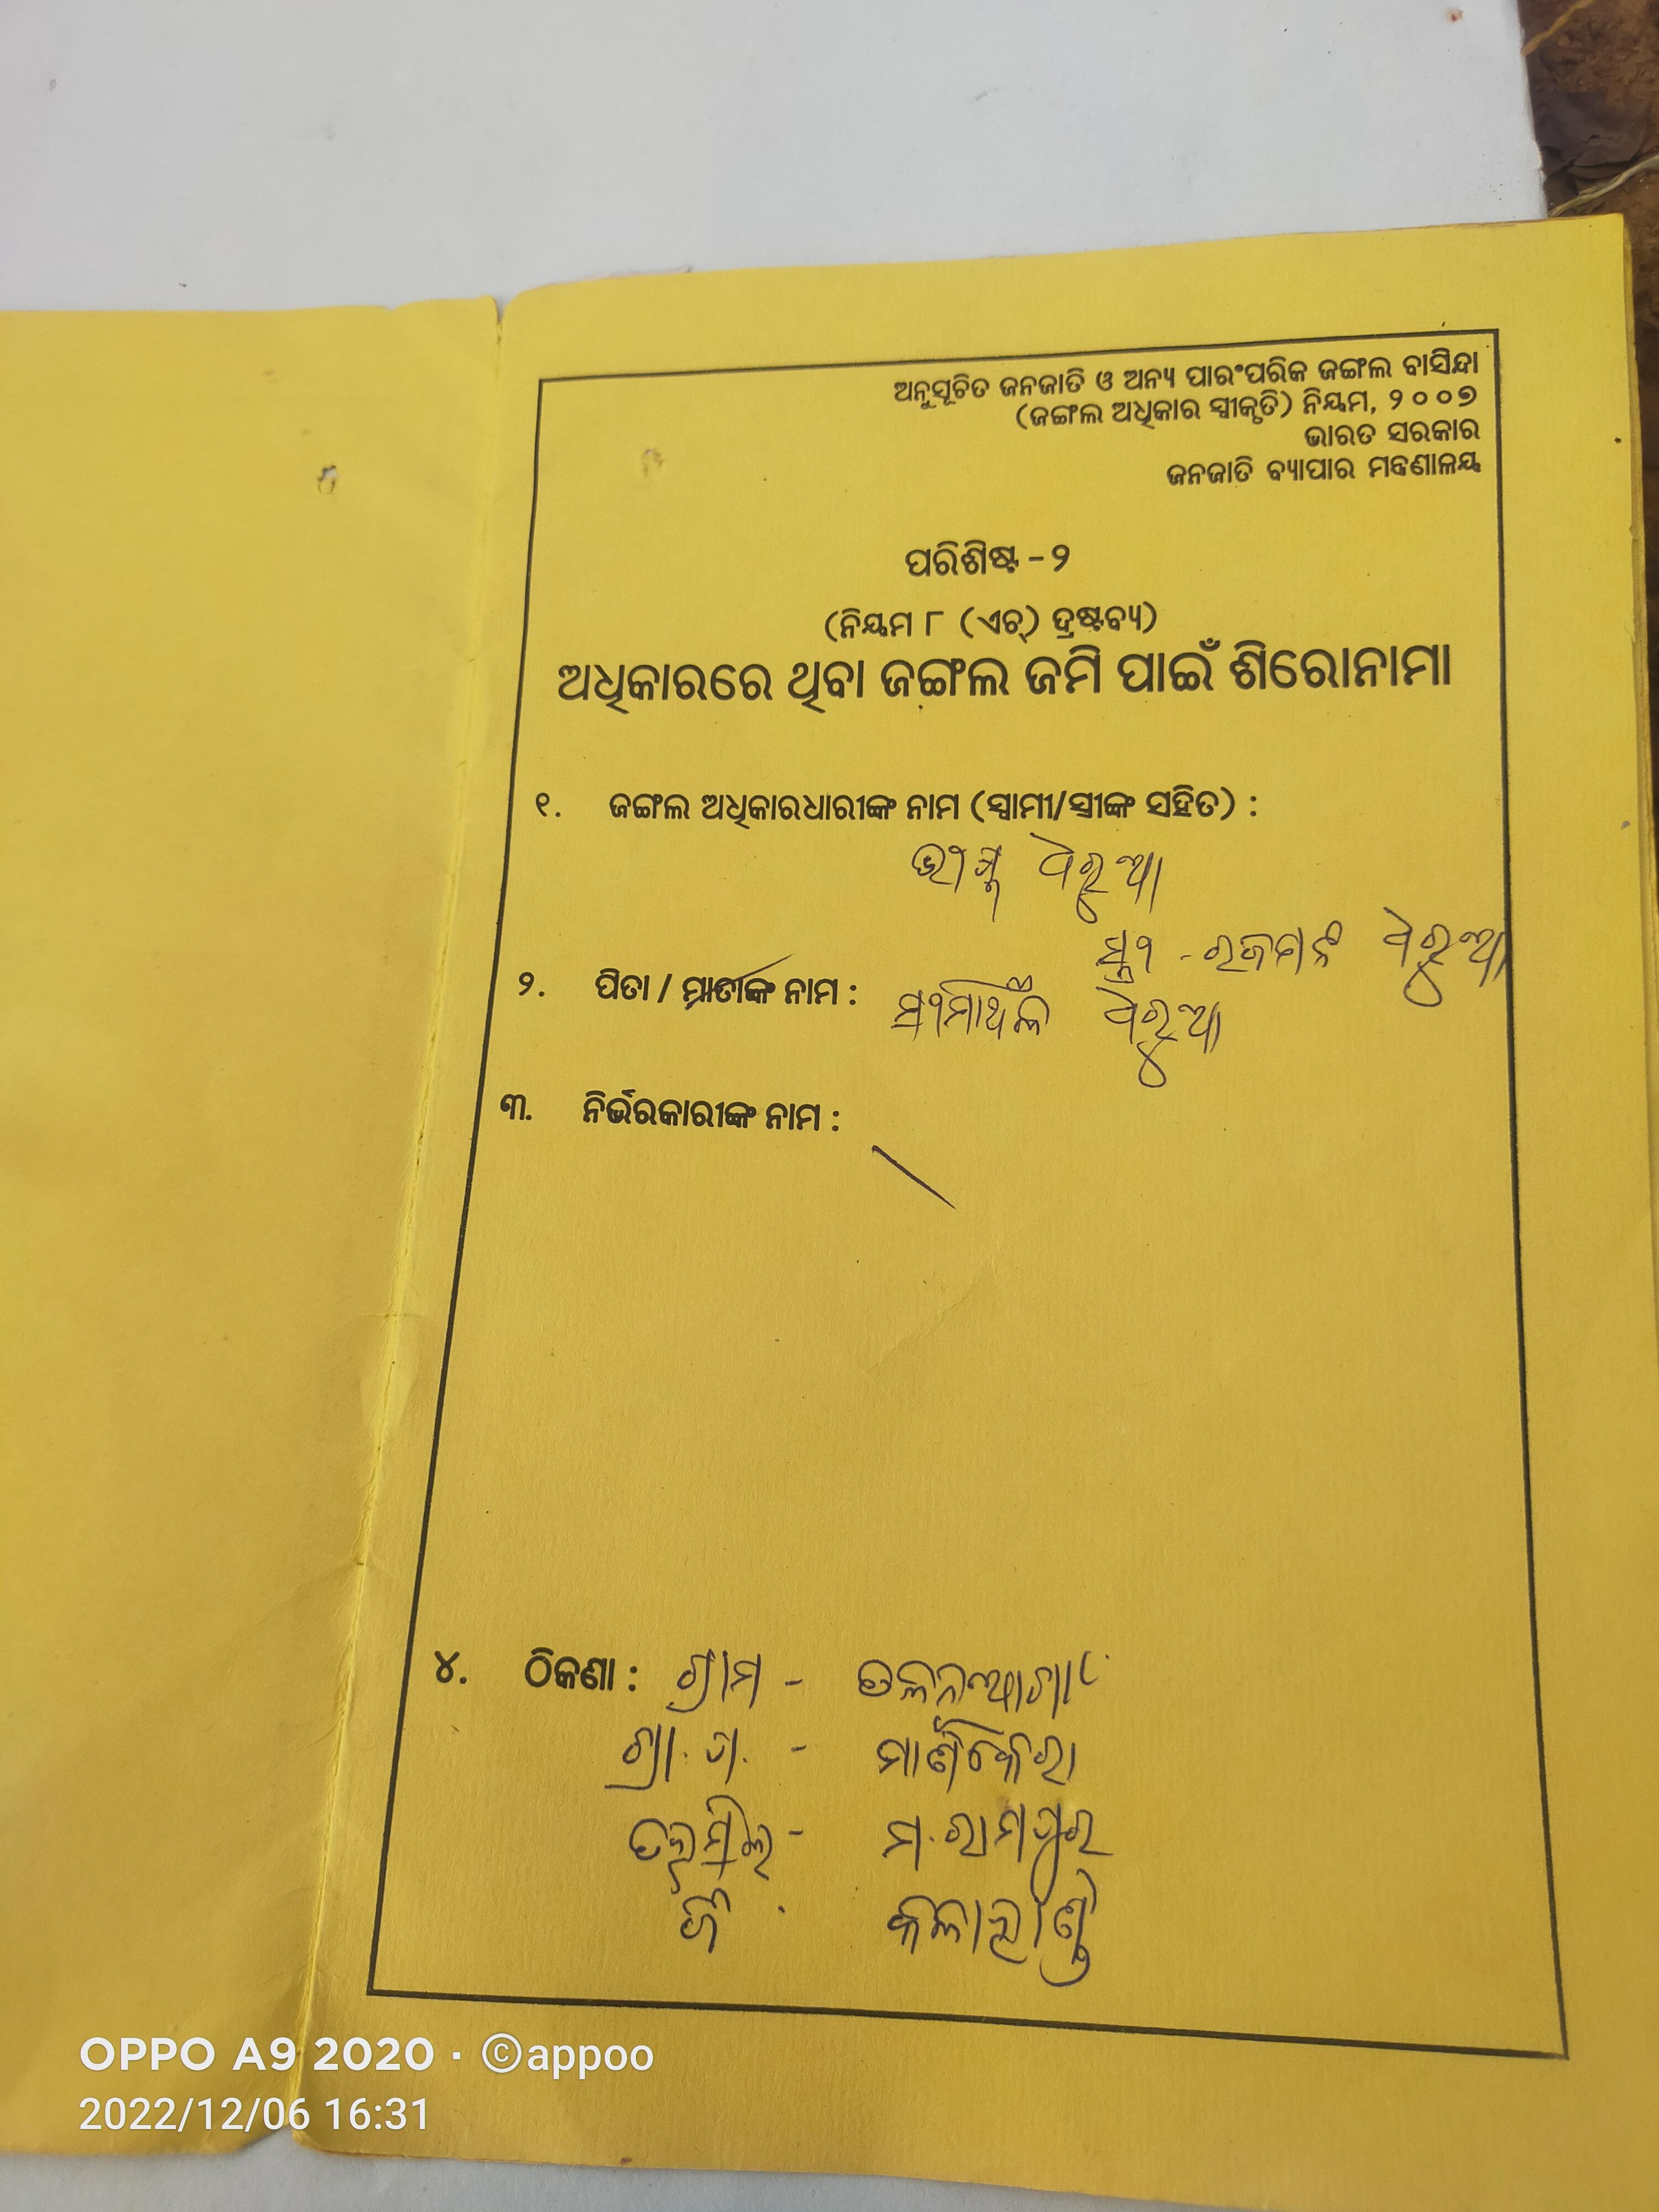 ଅନୁସୂଚିତ ଜନଜାତି ଓ ଅନ୍ୟ ପାରଂପରିକ ଜଙ୍ଗଲ ବାସିନ୍ଦା
(ଜଙ୍ଗଲ ଅଧିକାର ସ୍ୱୀକୃତି) ନିୟମ, ୨୦୦୭
ଭାରତ ସରକାର
ଜନଜାତି ବ୍ୟାପାର ମନ୍ତ୍ରଣାଳୟ
ପରିଶିଷ୍ଟ - ୨
(ନିୟମ ୮ (ଏଚ୍) ଦ୍ରଷ୍ଟବ୍ୟ)
ଅଧିକାରରେ ଥିବା ଜଙ୍ଗଲ ଜମି ପାଇଁ ଶିରୋନାମା
୧. ଜଙ୍ଗଲ ଅଧିକାରଧାରୀଙ୍କ ନାମ (ସ୍ୱାମୀ/ସ୍ତ୍ରୀଙ୍କ ସହିତ) :
ସ୍ତ୍ରୀ -
୨. ପିତା / ମାତାଙ୍କ ନାମ :
୩. ନିର୍ଭରକାରୀଙ୍କ ନାମ :
୪. ଠିକଣା : ଗ୍ରାମ -
ଗ୍ରା. ପ. - ମାଣିକେରା
ତହସିଲ - ମ. ରାମପୁର
ଜି. କଳାହାଣ୍ଡି
OPPO A9 2020 · ©appoo
2022/12/06 16:31